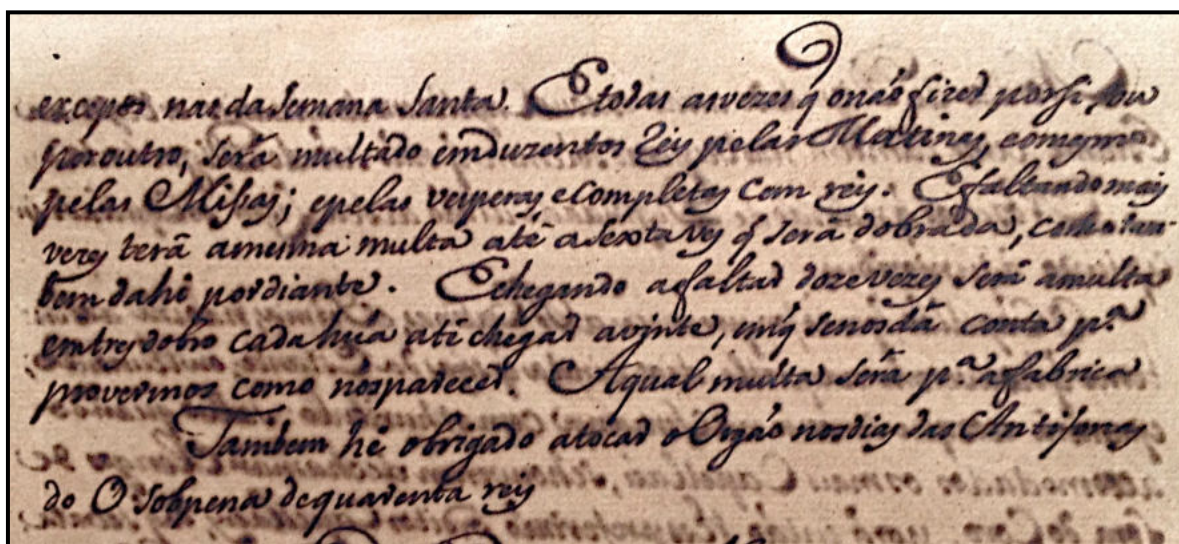 excepto nas da Semana Santa. E todas as vezes q̃ o não fizer por si, ou
por outro, será multado em duzentos reis pelas Matinas, e o mesmo
pelas Missas; e pelas vesperas e Completas Cem reis. E faltando mais
vezes terá a mesma multa até a sexta vez q̃ será dobrada, como tam-
bem dahi por diante. E chegando a faltar doze vezes será a multa
em tresdobro cada húa até chegar a vinte, em q̃ se nos dá conta p.ª
provermos como nos parecer. A qual multa será p.ª a fabrica
Tambem hé obrigado a tocar o Orgão nos dias das Antifonas
do O sobpena de quarenta reis